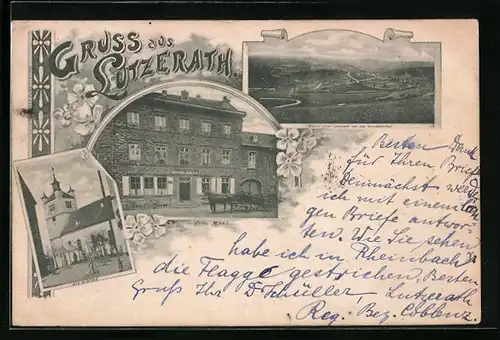 GRUSS aus
LUTZERATH.
HOTEL MAAS
HOTEL MAAS
DIE KIRCHE
Besten Dank
für Ihren Brief
Demnächst werde
ich mit einem lan
gen Briefe antwor
ten. Wie Sie sehen,
habe ich in Rheinbach
die Flagge gestrichen, Besten
Gruß Ihr Dr Schüller, Lutzerath
Reg. Bez. Coblenz.